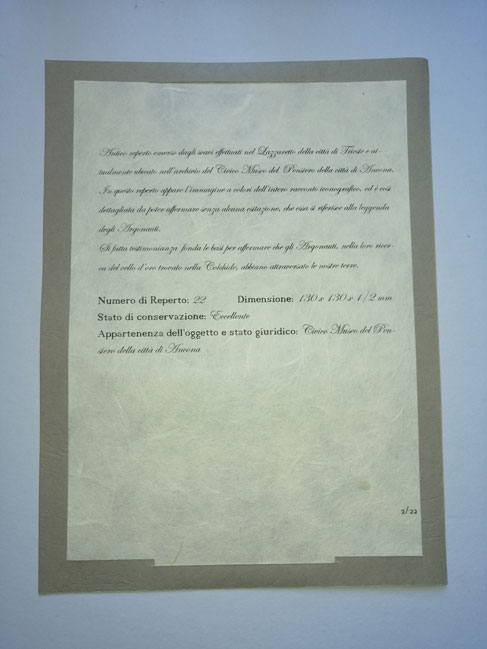 Antico reperto emerso dagli scavi effettuati nel Lazzaretto della città di Trieste e at-
tualmente ubicato nell'archivio del Civico Museo del Pensiero della città di Ancona.
In questo reperto appare l'immagine a colori dell'intero racconto iconografico, ed è così
dettagliata da poter affermare senza alcuna esitazione, che essa si riferisce alla leggenda
degli Argonauti.
Si fatta testimonianza fonda le basi per affermare che gli Argonauti, nella loro ricer-
ca del vello d'oro trovato nella Colchide, abbiano attraversato le nostre terre.
Numero di Reperto: 22 Dimensione: 130 x 130 x 1/2 mm
Stato di conservazione: Eccellente
Appartenenza dell'oggetto e stato giuridico: Civico Museo del Pen-
siero della città di Ancona
2/22